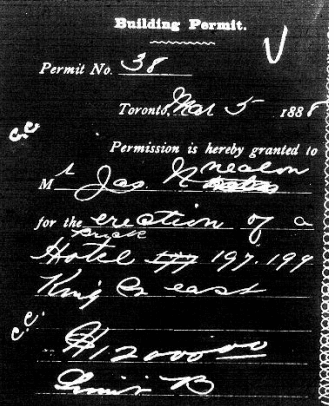 Building Permit.
Permit No. 38
Toronto, Mar 5 1888
c.c.
Permission is hereby granted to
Mr Jas. Nealon
for the erection of a
brick
Hotel 197.199
King St east
c.c.
$12000.00
Limit B